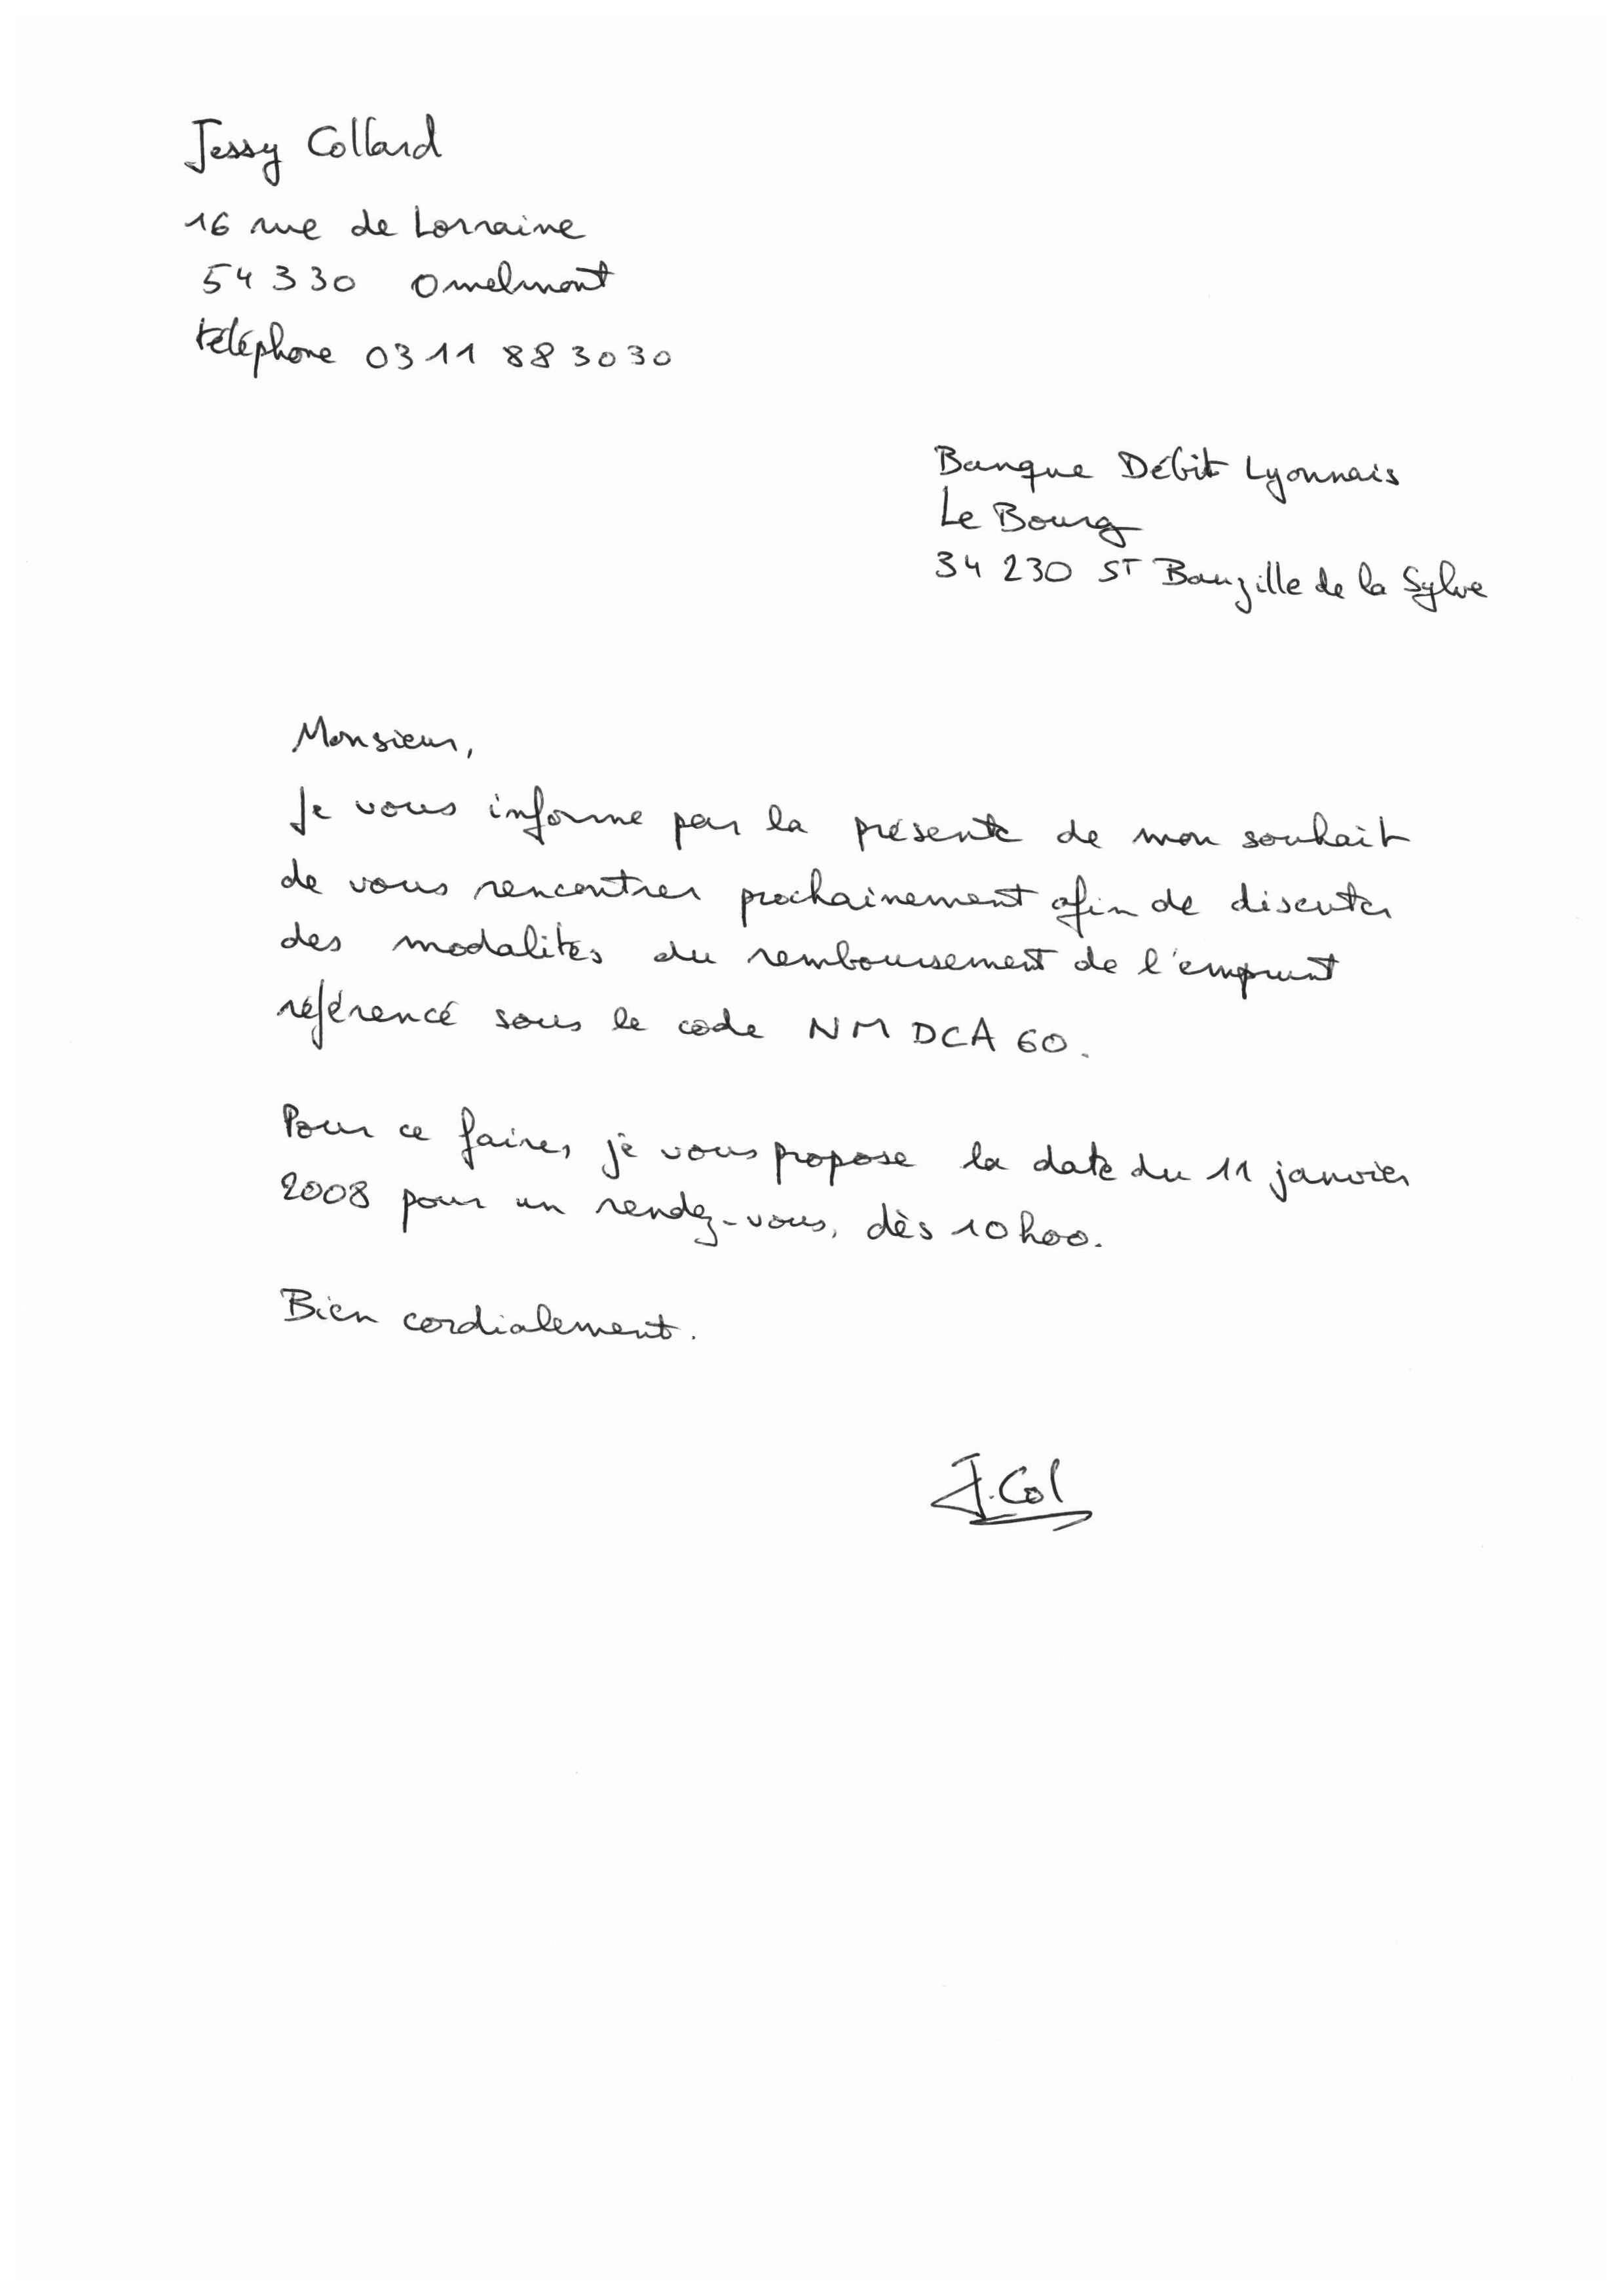 Jessy Collard
16 rue de Lorraine
54 330 Omelmont
téléphone 03 11 88 30 30
Banque Débit Lyonnais
Le Bourg
34 230 ST Bauzille de la Sylve
Monsieur,
Je vous informe par la présente de mon souhait
de vous rencontrer prochainement afin de discuter
des modalités du remboursement de l'emprunt
référencé sous le code NMDCA 60.
Pour ce faire, je vous propose la date du 11 janvier
2008 pour un rendez-vous, dès 10h00.
Bien cordialement.
J.Col